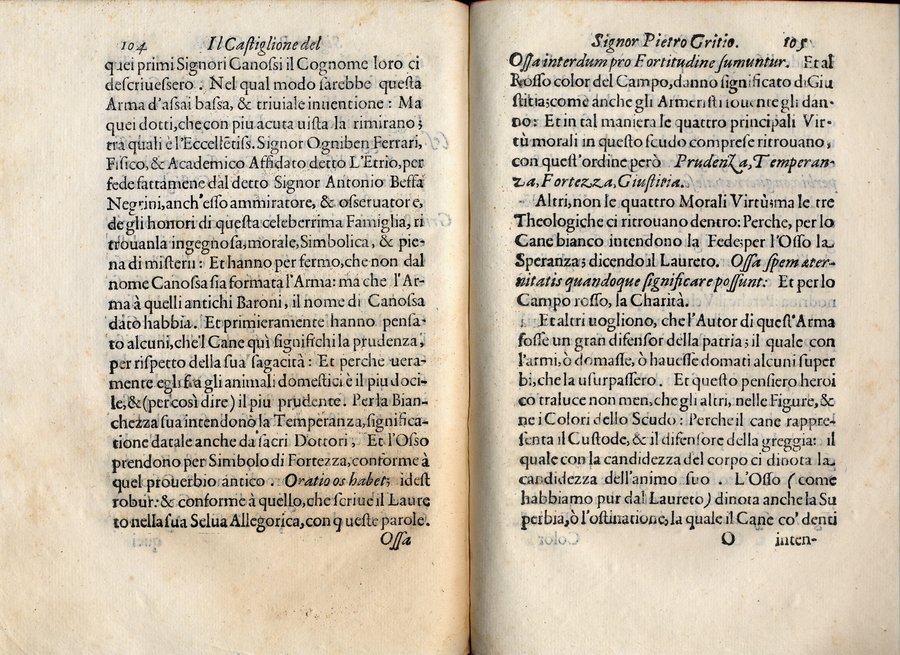 104 Il Castiglione del
quei primi Signori Canossi il Cognome loro ci
descriuessero . Nel qual modo sarebbe questa
Arma d'assai bassa, & triuiale inuentione : Ma
quei dotti, che con piu acuta uista la rimirano ;
trà quali è l'Eccellẽtiss. Signor Ogniben Ferrari,
Fisico, & Academico Affidato detto L'Etrio, per
fede fattamene dal detto Signor Antonio Beffa
Negrini, anch'esso ammiratore, & osseruatore,
de gli honori di questa celeberrima Famiglia, ri
trouanla ingegnosa, morale, Simbolica, & pie-
na di misterii : Et hanno per fermo, che non dal
nome Canossa sia formata l'Arma: ma che l'Ar-
ma à quelli antichi Baroni, il nome di Canossa
dato habbia . Et primieramente hanno pensa-
to alcuni, che'l Cane quì significhi la prudenza,
per rispetto della sua sagacità : Et perche uera-
mente egli frà gli animali domestici è il piu doci-
le, & (per così dire) il piu prudente. Per la Bian-
chezza sua intendono la Temperanza, significa-
tione datale anche da sacri Dottori ; Et l'Osso
prendono per Simbolo di Fortezza, conforme à
quel prouerbio antico . Oratio os habet; idest
robur: & conforme à quello, che scriue il Laure
to nella sua Selua Allegorica, con queste parole.
Ossa
Signor Pietro Gritio. 105
Ossa interdum pro Fortitudine sumuntur. Et al
Rosso color del Campo, danno significato di Giu
stitia; come anche gli Armeristi souente gli dan-
no: Et in tal maniera le quattro principali Vir-
tù morali in questo scudo comprese ritrouano,
con quest'ordine però Prudenza, Temperan-
za, Fortezza, Giustitia.
Altri, non le quattro Morali Virtù; ma le tre
Theologiche ci ritrouano dentro: Perche, per lo
Cane bianco intendono la Fede; per l'Osso la
Speranza; dicendo il Laureto. Ossa spem æter-
nitatis quandoque significare possunt: Et per lo
Campo rosso, la Charità.
Et altri uogliono, che l'Autor di quest'Arma
fosse un gran difensor della patria; il quale con
l'armi, ò domasse, ò hauesse domati alcuni super
bi, che la usurpassero . Et questo pensiero heroi
co traluce non men, che gli altri, nelle Figure, &
ne i Colori dello Scudo : Perche il cane rappre-
senta il Custode, & il difensore della greggia: il
quale con la candidezza del corpo ci dinota la
candidezza dell'animo suo . L'Osso (come
habbiamo pur dal Laureto) dinota anche la Su
perbia, ò l'ostinatione; la quale il Cane co' denti
O inten-